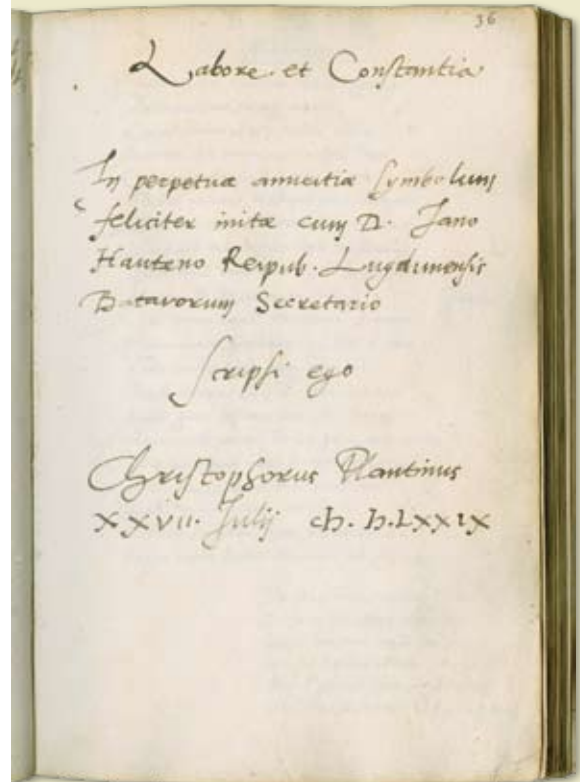 36
Labore et Constantia
In perpetuæ amicitiæ symbolum
feliciter initæ cum D. Jano
Hauteno Reipub. Lugdunensis
Batavorum Secretario
scripsi ego
Christophorus Plantinus
XXVII. Julij cIↃ. IↃ. LXXIX